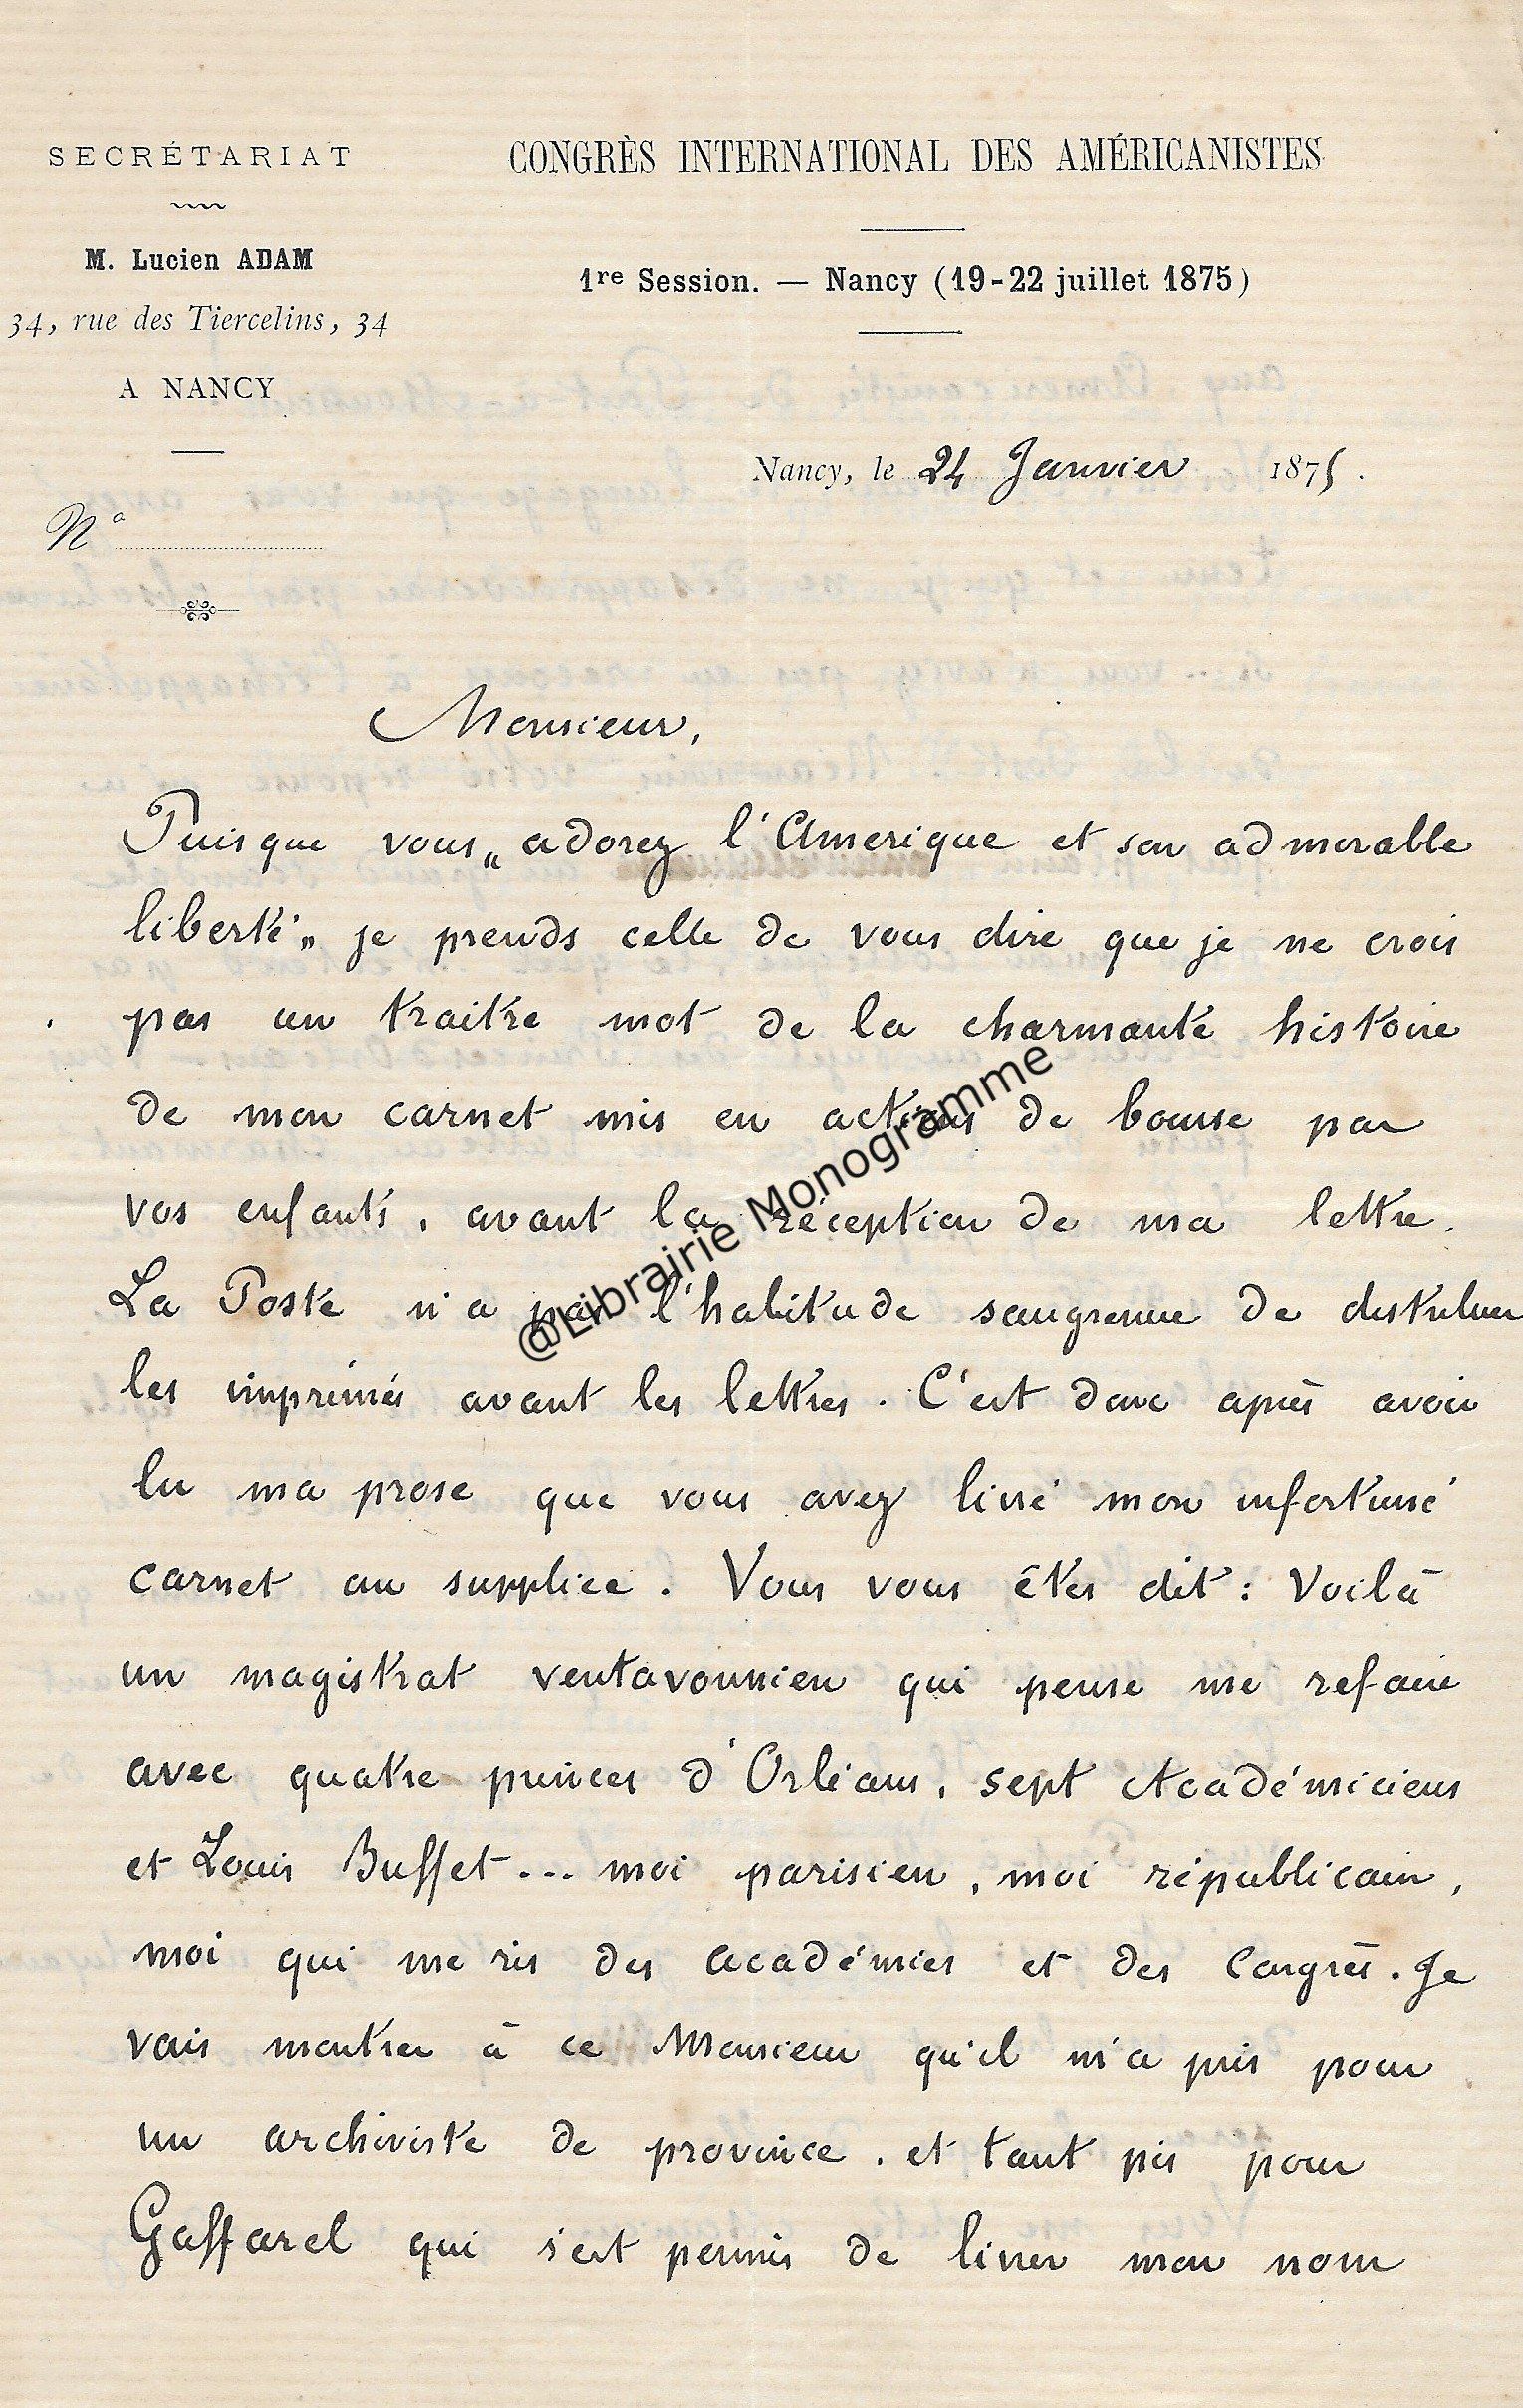 SECRÉTARIAT
M. Lucien ADAM
34, rue des Tiercelins, 34
A NANCY
Nº
CONGRÈS INTERNATIONAL DES AMÉRICANISTES
1re Session. — Nancy (19-22 juillet 1875)
Nancy, le 24 Janvier 1875.
Monsieur,
Puisque vous „ adorez l'Amerique et son admirable
liberté „ je prends celle de vous dire que je ne crois
pas un traitre mot de la charmante histoire
de mon carnet mis en actions de bourse par
vos enfants, avant la réception de ma lettre.
La Poste n'a pas l'habitude saugrenue de distribuer
les imprimés avant les lettres. C'est donc après avoir
lu ma prose que vous avez livré mon infortuné
carnet au supplice. Vous vous êtes dit : Voilà
un magistrat ventavounien qui pense me refaire
avec quatre princes d'Orléans, sept Académiciens
et Louis Buffet... moi parisien, moi républicain,
moi qui me ris des académies et des Congrès. Je
vais montrer à ce Monsieur qu'il m'a pris pour
un archiviste de province, et tant pis pour
Gaffarel qui s'est permis de livrer mon nom
@Librairie Monogramme